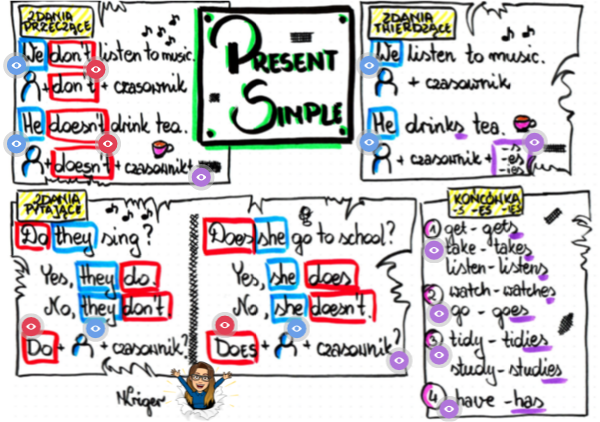 ZDANIA
PRZECZĄCE
We don't listen to music.
+ don't + czasownik
He doesn't drink tea.
+ doesn't + czasownik
PRESENT
SIMPLE
ZDANIA
TWIERDZĄCE
We listen to music.
+ czasownik
He drinks tea.
+ czasownik + -s
-es
-ies
ZDANIA
PYTAJĄCE
Do they sing?
Yes, they do.
No, they don't.
Do + + czasownik?
Does she go to school?
Yes, she does.
No, she doesn't.
Does + + czasownik?
KOŃCÓWKA
-S -ES -IES
1 get - gets
take - takes
listen - listens
2 watch - watches
go - goes
3 tidy - tidies
study - studies
4 have - has
NKriger